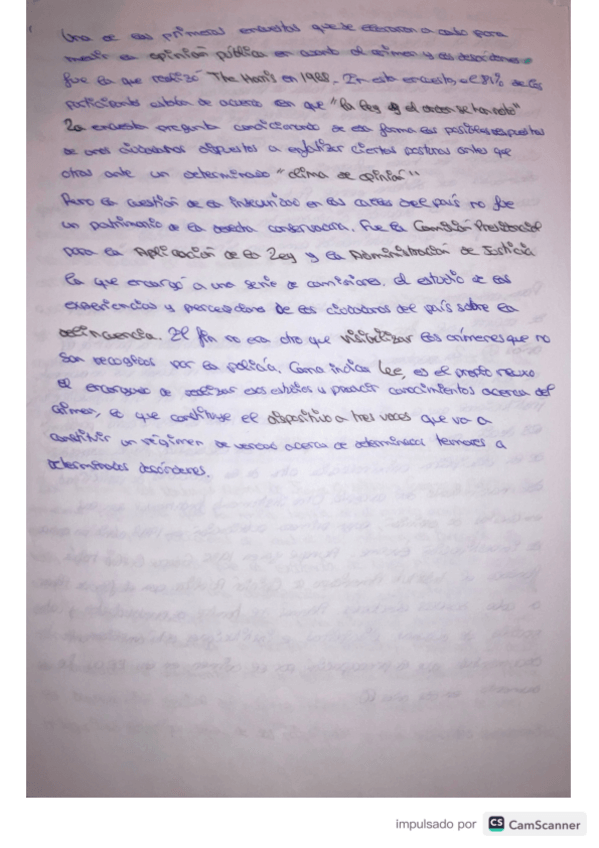 Una de las primeras encuestas que se llevaron a cabo para
medir la opinión pública en cuanto al crimen y los desórdenes
fue la que realizó The Harris en 1968. En esta encuesta, el 81% de los
participantes estaba de acuerdo en que "la ley y el orden se han roto"
La encuesta pregunta condicionando de esa forma las posibles respuestas
de unos ciudadanos dispuestos a enfatizar ciertas posturas antes que
otras ante un determinado "clima de opinión"
Pero la cuestión de la inseguridad en las calles del país no fue
un patrimonio de la derecha conservadora. Fue la Comisión Presidencial
para la Aplicación de la Ley y la Administración de Justicia
la que encargó a una serie de comisiones, el estudio de las
experiencias y percepciones de los ciudadanos del país sobre la
delincuencia. El fin no era otro que visibilizar los crímenes que no
son recogidos por la policía. Como indica Lee, es el propio
el encargado de realizar esos estudios y producir conocimientos acerca del
crimen, lo que constituye el dispositivo a tres voces que va a
constituir un régimen de verdad acerca de determinados temores a
determinados desórdenes.
impulsado por CS CamScanner